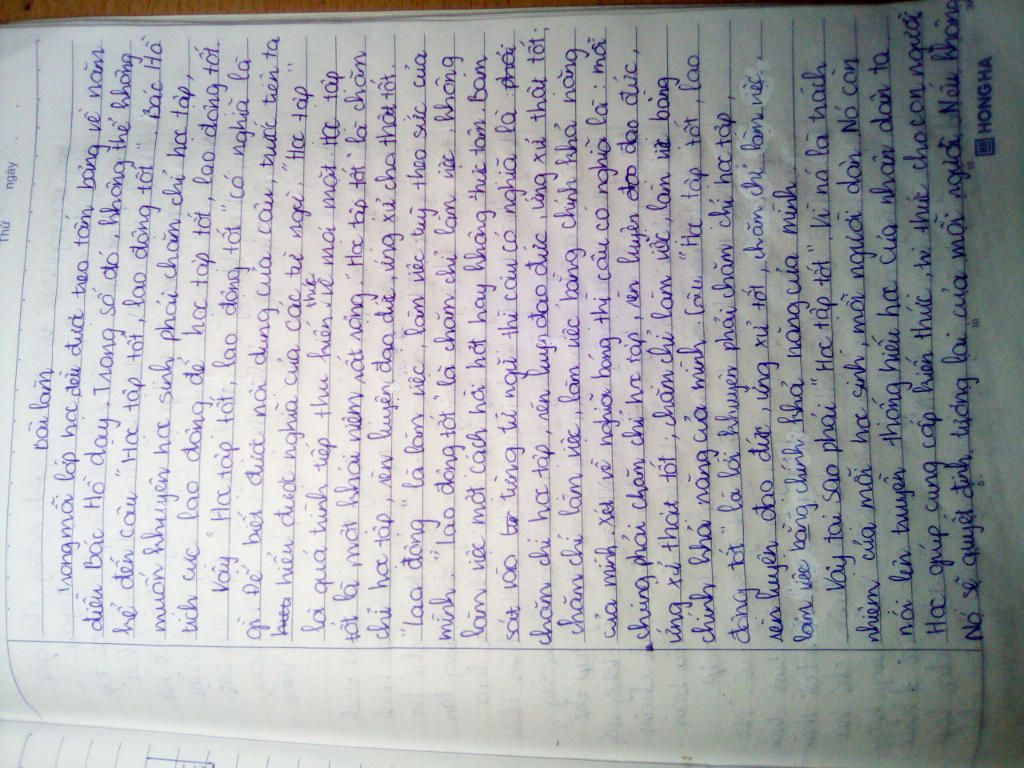 Thứ ngày
Bài làm
Trong mỗi lớp học đều được treo tấm bảng về năm
điều Bác Hồ dạy. Trong số đó, không thể không
kể đến câu "Học tập tốt, lao động tốt". Bác Hồ
muốn khuyên học sinh phải chăm chỉ học tập,
tích cực lao động để học tập tốt, lao động tốt
Vậy "Học tập tốt, lao động tốt" có nghĩa là
gì. Để biết được nội dung của câu, trước tiên ta
hiểu được nghĩa của các từ ngữ, "Học tập"
là quá trình tiếp thu kiến thức về mỗi một học tập
tốt là một khái niệm rất rộng, "Học tập tốt" là chăm
chỉ học tập, rèn luyện đạo đức, ứng xử cho thật tốt,
"Lao động" là làm việc, làm việc tuỳ theo sức của
mình. "Lao động tốt" là chăm chỉ làm việc, không
làm việc một cách hời hợt hay không thức tâm. Bám
sát vào từng từ ngữ thì câu có nghĩa là phải
chăm chỉ học tập, rèn luyện đạo đức, ứng xử thật tốt,
chăm chỉ làm việc, làm việc bằng chính khả năng
của mình. Xét về nghĩa bóng thì câu có nghĩa là: mỗi
chúng phải chăm chỉ học tập, rèn luyện đạo đức,
ứng xử thật tốt, chăm chỉ làm việc, làm việc bằng
chính khả năng của mình. Câu "Học tập tốt, lao
động tốt" là lời khuyên phải chăm chỉ học tập,
rèn luyện đạo đức, ứng xử tốt, chăm chỉ làm việc,
làm việc bằng chính khả năng của mình.
Vậy tại sao phải "Học tập tốt". Vì nó là trách
nhiệm của mỗi học sinh, mỗi người dân. Nó còn
nói lên truyền thống hiếu học của nhân dân ta
Học giúp cung cấp kiến thức, tri thức cho con người
Nó sẽ quyết định tương lai của mỗi người. Nếu không
HONG HA